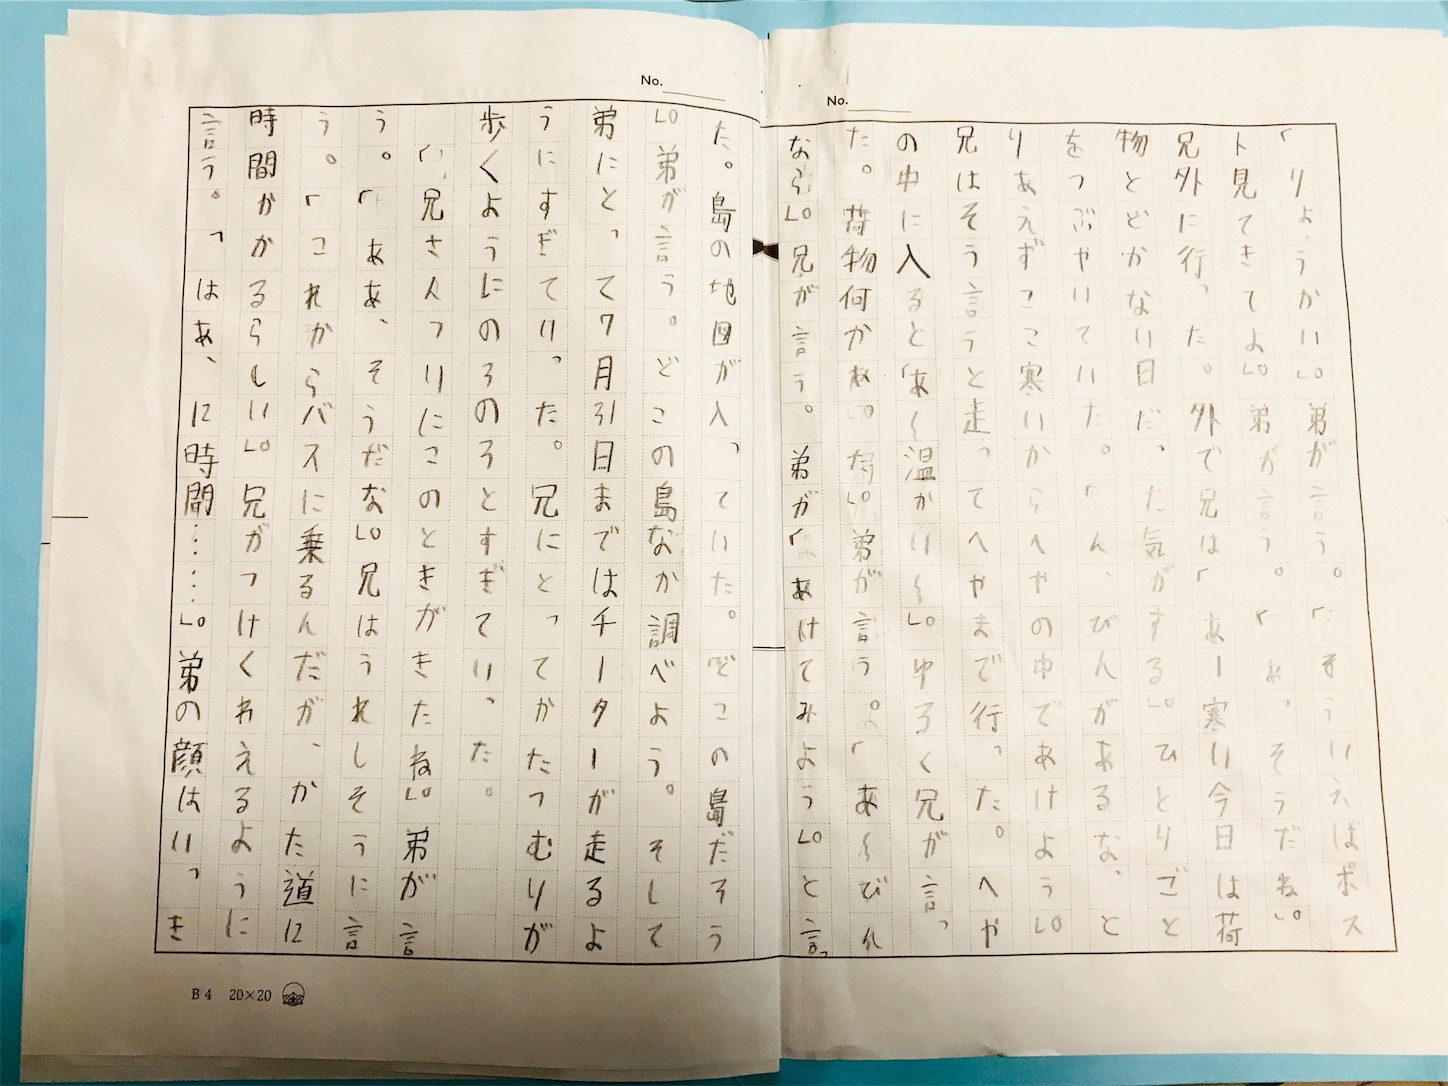 No.
「りょうかい」。弟が言う。「そういえばポス
ト見てきてよ」。弟が言う。「あっ、そうだね」。
兄外に行った。外で兄は「あー寒い今日は荷
物とどかない日だった気がする」。ひとりごと
をつぶやいていた。「ん、びんがあるな、と
りあえずここ寒いからへやの中であけよう」。
兄はそう言うと走ってへやまで行った。へや
の中に入ると「あ〜温かい〜」。ゆるく兄が言っ
た。荷物何かあった」。弟が言う。「あ〜びん
なら」。兄が言う。弟が「あけてみよう」。と言っ
No.
た。島の地図が入っていた。どこの島だろう
」。弟が言う。どこの島なか調べよう。そして
弟にとって7月31日まではチーターが走るよ
うにすぎていった。兄にとってかたつむりが
歩くようにのろのろとすぎていった。
「兄さんついにこのときがきたね」。弟が言
う。「ああ、そうだな」。兄はうれしそうに言
う。「これからバスに乗るんだが、かた道12
時間かかるらしい」。兄がつけくわえるように
言う。「はあ、12時間……」。弟の顔はいっき
B4 20×20